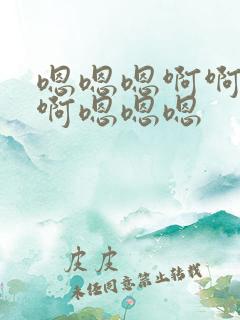 嗯嗯嗯啊啊
啊嗯嗯嗯
皮皮
未经同意禁止转载